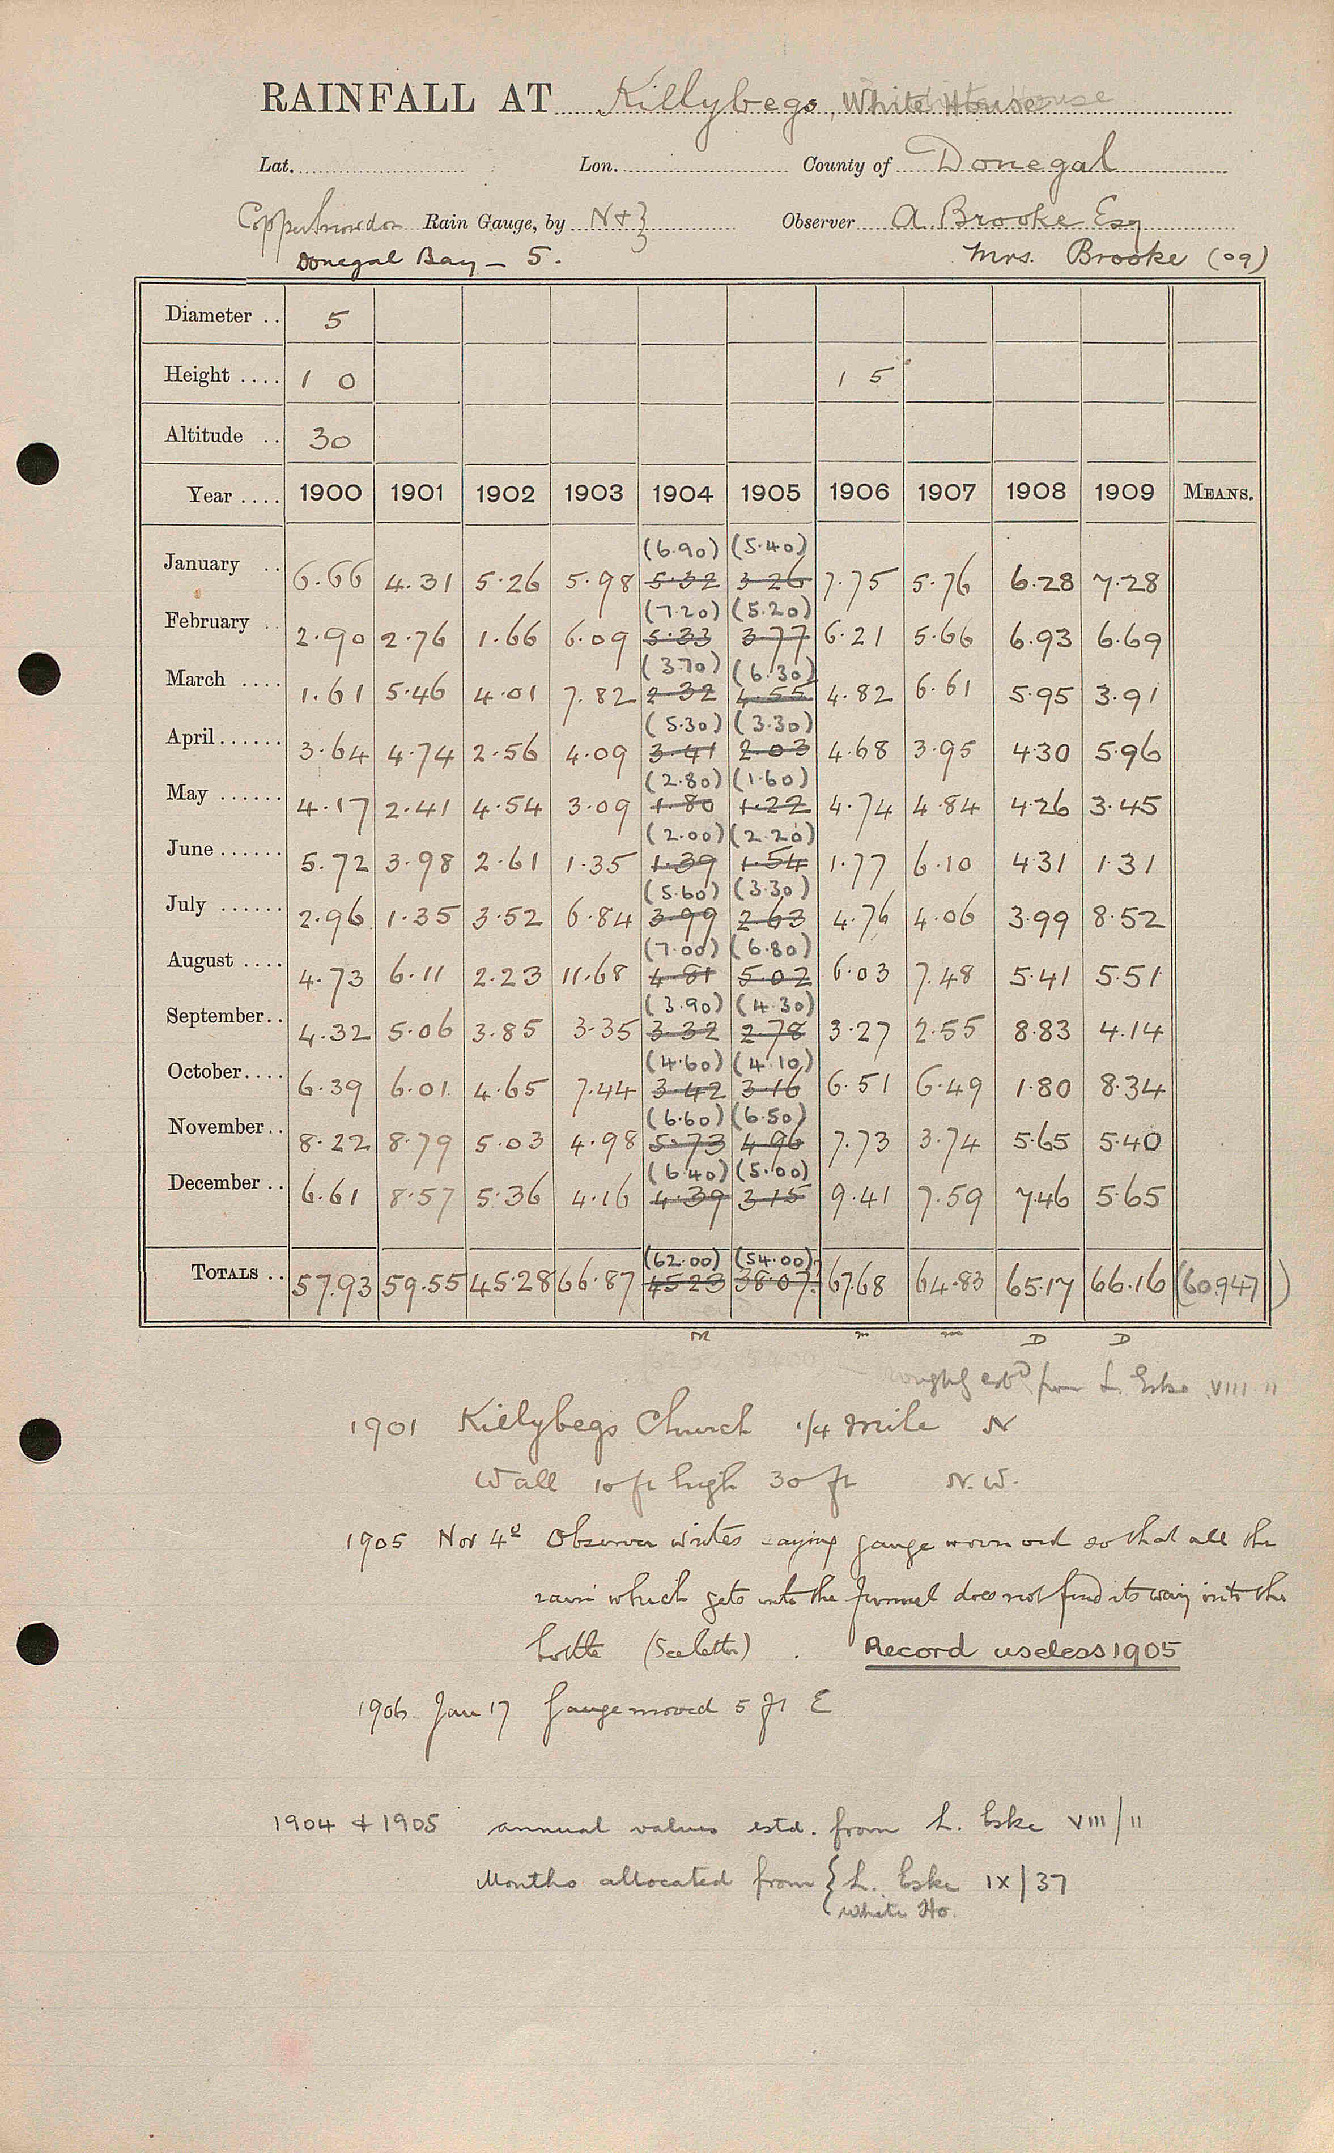 RAINFALL AT Killybegs, White House
Lat. Lon. County of Donegal
Copper Snowdon Rain Gauge, by N + Z Observer A. Brooke Esq
Donegal Bay – 5. Mrs. Brooke (09)
Diameter .. 5
Height .... 1 0 1 5
Altitude .. 30
Year .... 1900 1901 1902 1903 1904 1905 1906 1907 1908 1909 MEANS.
(6.90) (5.40)
January .. 6.66 4.31 5.26 5.98 5.32 3.26 7.75 5.76 6.28 7.28
(7.20) (5.20)
February .. 2.90 2.76 1.66 6.09 5.33 3.77 6.21 5.66 6.93 6.69
(3.70) (6.30)
March .... 1.61 5.46 4.01 7.82 2.32 4.55 4.82 6.61 5.95 3.91
(5.30) (3.30)
April...... 3.64 4.74 2.56 4.09 3.41 2.03 4.68 3.95 4.30 5.96
(2.80) (1.60)
May ...... 4.17 2.41 4.54 3.09 1.80 1.22 4.74 4.84 4.26 3.45
(2.00) (2.20)
June...... 5.72 3.98 2.61 1.35 1.39 1.54 1.77 6.10 4.31 1.31
(5.60) (3.30)
July ...... 2.96 1.35 3.52 6.84 3.99 2.63 4.76 4.06 3.99 8.52
(7.00) (6.80)
August .... 4.73 6.11 2.23 11.68 4.81 5.02 6.03 7.48 5.41 5.51
(3.90) (4.30)
September.. 4.32 5.06 3.85 3.35 3.32 2.78 3.27 2.55 8.83 4.14
(4.60) (4.10)
October.... 6.39 6.01 4.65 7.44 3.42 3.16 6.51 6.49 1.80 8.34
(6.60) (6.50)
November.. 8.22 8.79 5.03 4.98 5.73 4.96 7.73 3.74 5.65 5.40
(6.40) (5.00)
December.. 6.61 8.57 5.36 4.16 4.39 3.15 9.41 7.59 7.46 5.65
(62.00) (54.00)
TOTALS .. 57.93 59.55 45.28 66.87 45.23 38.07 67.68 64.83 65.17 66.16 (60.947)
M m m D D
roughly estd from L. Eske VIII 11
1901 Killybegs Church 1/4 mile N
Wall 10 ft high 30 ft N.W.
1905 Nov 4d Observer writes saying gauge worn out so that all the
rain which gets into the funnel does not find its way into the
bottle (See letter). Record useless 1905
1906 Jan 17 Gauge moved 5 ft E
1904 + 1905 annual values estd. from L. Eske VIII/11
Months allocated from { L. Eske IX/37
White Ho.